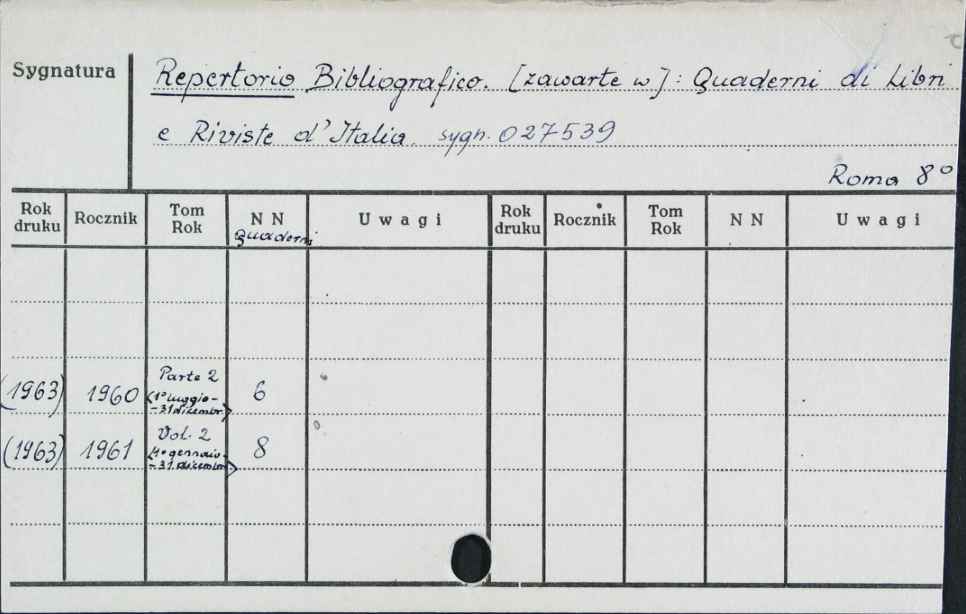 Sygnatura
Repertorio Bibliografico. [zawarte w]: Quaderni di Libri
e Riviste d'Italia. sygn. 027539
Roma 8°
Rok druku Rocznik Tom Rok N N Uwagi Rok druku Rocznik Tom Rok N N Uwagi
Quaderni
(1963) 1960 Parte 2 6
(1° luglio-
-31 dicembr)
(1963) 1961 Vol. 2 8
(1° gennaio-
-31. dicembr)